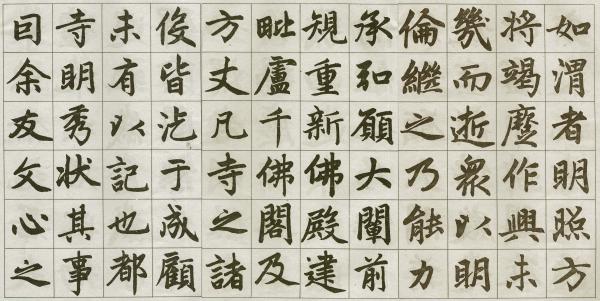 如渭者明照方
将竭作興未
幾而逝衆以明
倫繼之乃能力
承弘願大闡前
規重新佛殿建
毗盧千佛閣及
方丈凡寺之諸
役皆汔于成顧
未有以記也都
寺明秀状其事
囙余友文心之